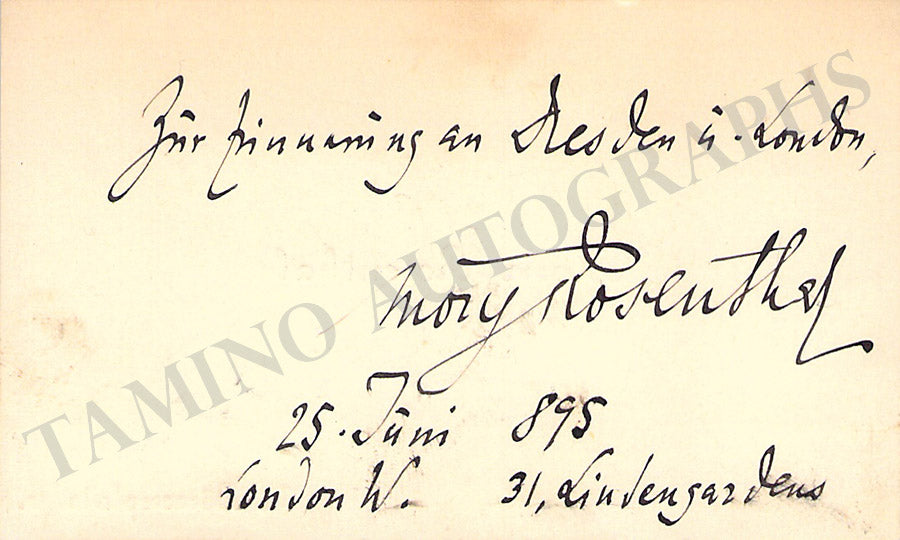 Zur Erinnerung an Dresden u. London,
Moriz Rosenthal
25. Juni 895
London W. 31, Lindengardens
TAMINO AUTOGRAPHS